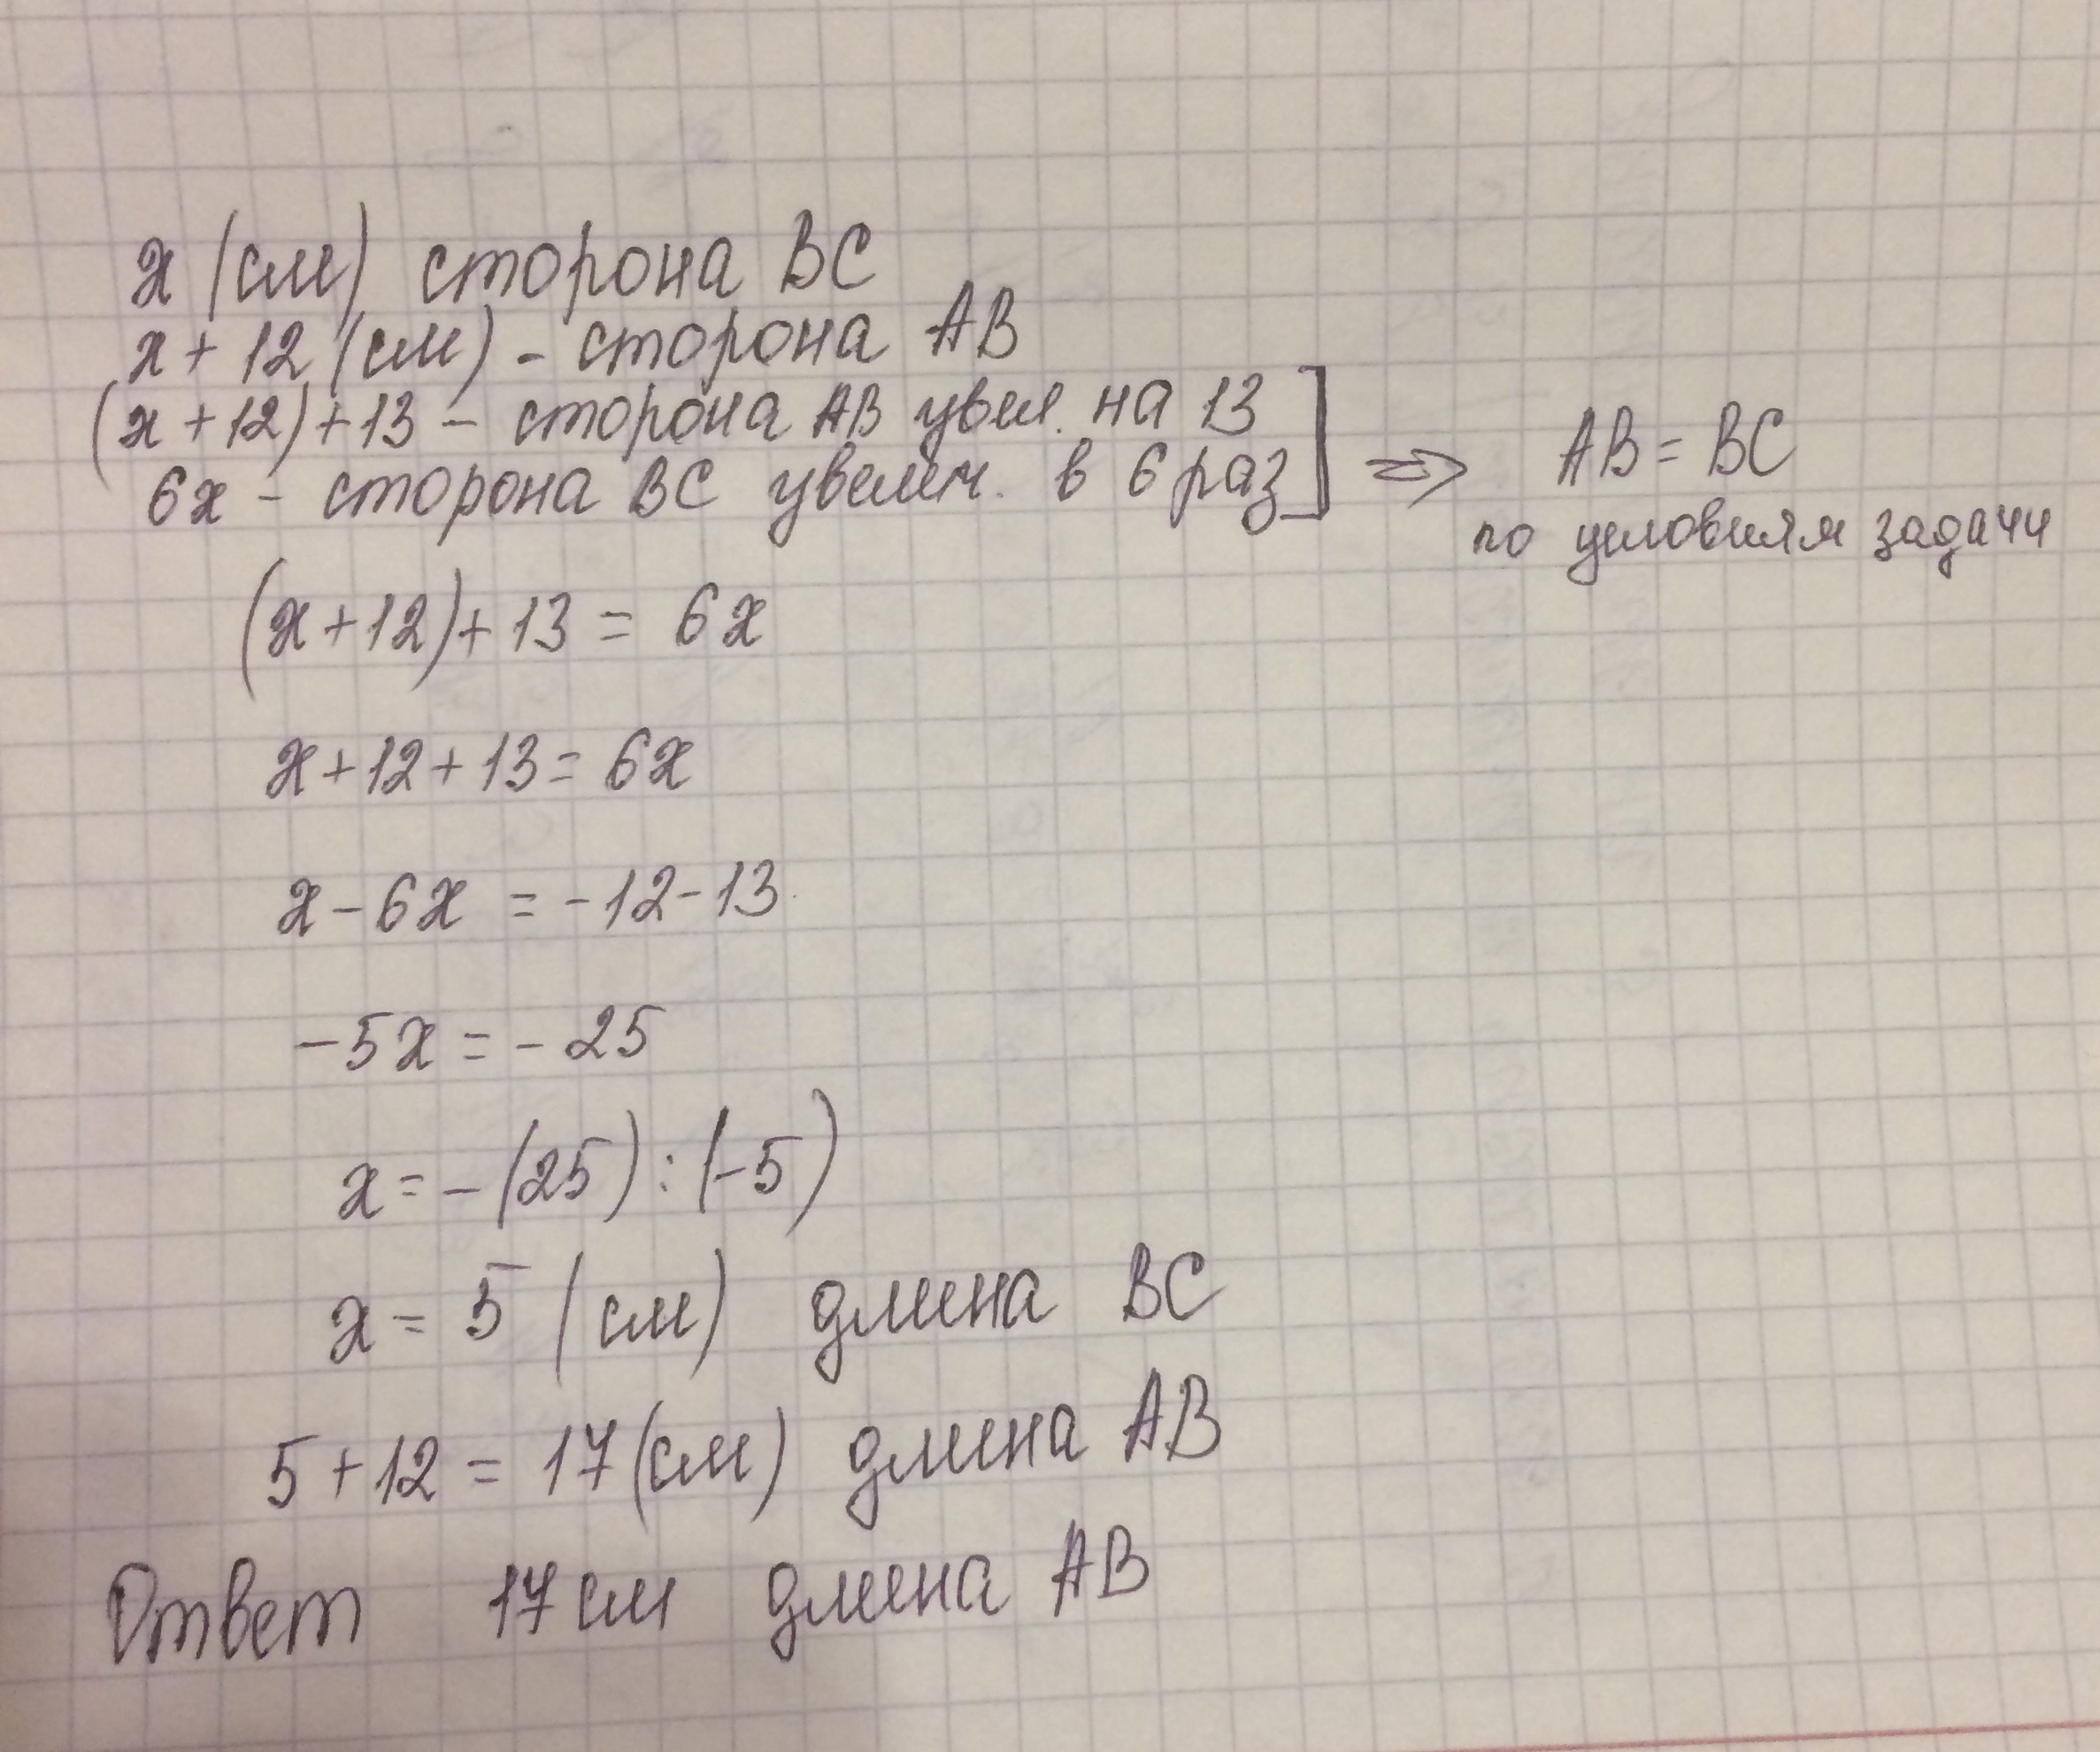 x (см) сторона BC
x + 12 (см) - сторона AB
(x + 12) + 13 - сторона AB увел. на 13
6x - сторона BC увелич. в 6 раз ] ⇒ AB = BC
по условиям задачи
(x + 12) + 13 = 6x
x + 12 + 13 = 6x
x - 6x = - 12 - 13
- 5x = - 25
x = - (25) : (-5)
x = 5 (см) длина BC
5 + 12 = 17 (см) длина AB
Ответ 17 см длина AB